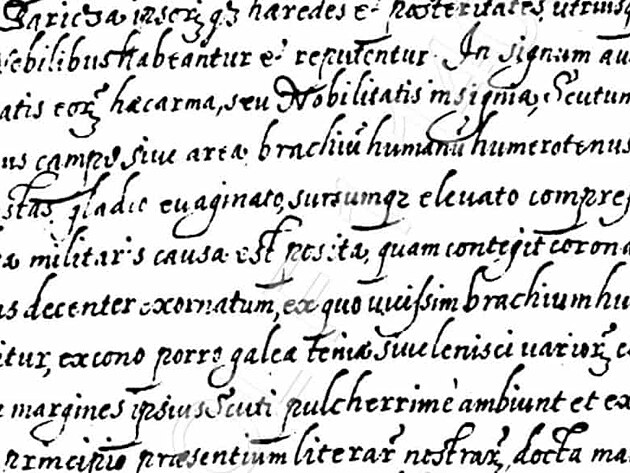 ipsorꝫ qꝫ hæredes & posteritates, utriusq
nebilibus habeantur & reputentur. In signum au
atis eorꝫ hæc arma, seu Nobilitatis insignia, Scutum
us campo sive area brachiū humanū humerotenus
gladio evaginato, sursumqz elevato compres
ea militaris causa est posita, quam contegit corona
as decenter exornatum, ex quo vivissim brachium hu
itur, ex cono porro galea teniæ sive lenisci variorꝫ c
margines ipsius Scuti pulcherrimè ambiunt et ex
principio præsentium literarꝫ nostrarꝫ docta ma